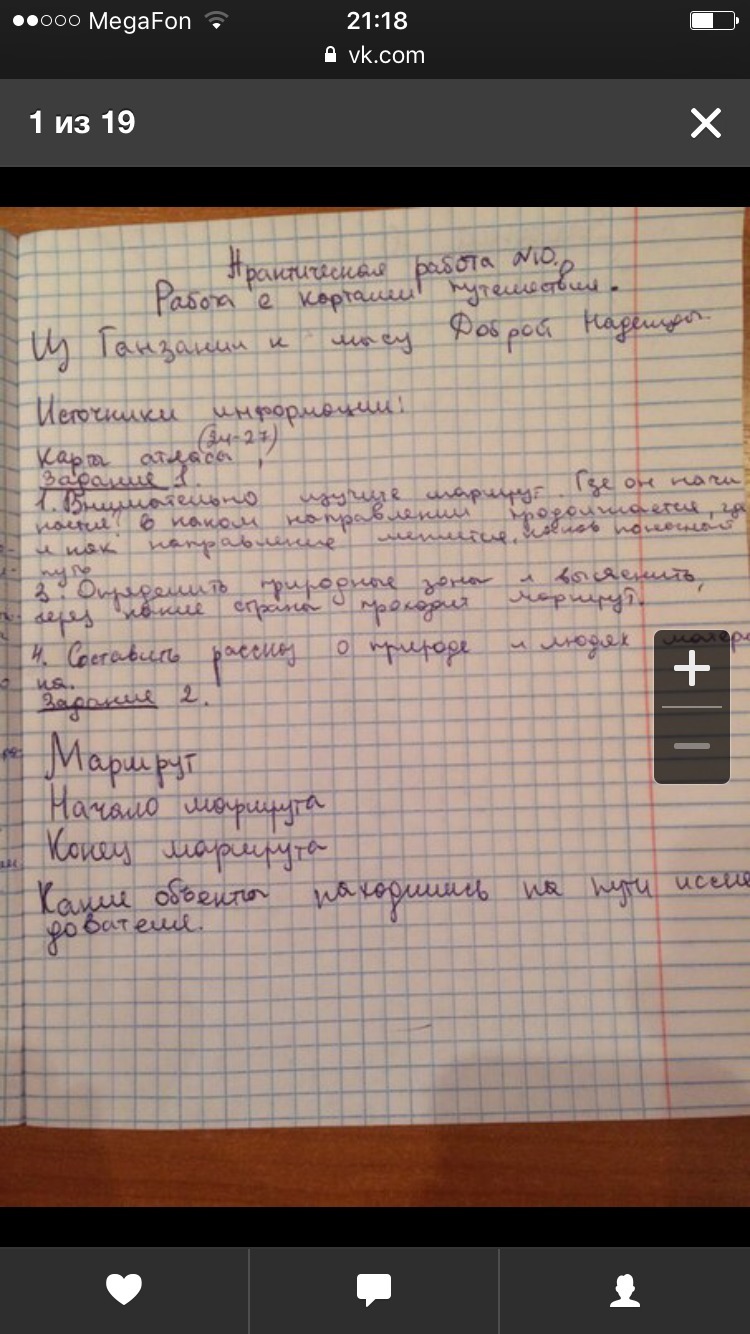 MegaFon 21:18
vk.com
1 из 19
Практическая работа №10.
Работа с картами путешествия.
Из Танзании к мысу Доброй Надежды.
Источники информации:
(24-27)
Карта атласа,
Задание 1.
1. Внимательно изучите маршрут. Где он начи
нается? В каком направлении продолжается, где
и как направление меняется, каков конечный
путь
3. Определить природные зоны и выяснить,
через какие страны проходит маршрут.
4. Составить рассказ о природе и людях матери
ка.
Задание 2.
Маршрут
Начало маршрута
Конец маршрута
Какие объекты находились на пути иссле
дователя.